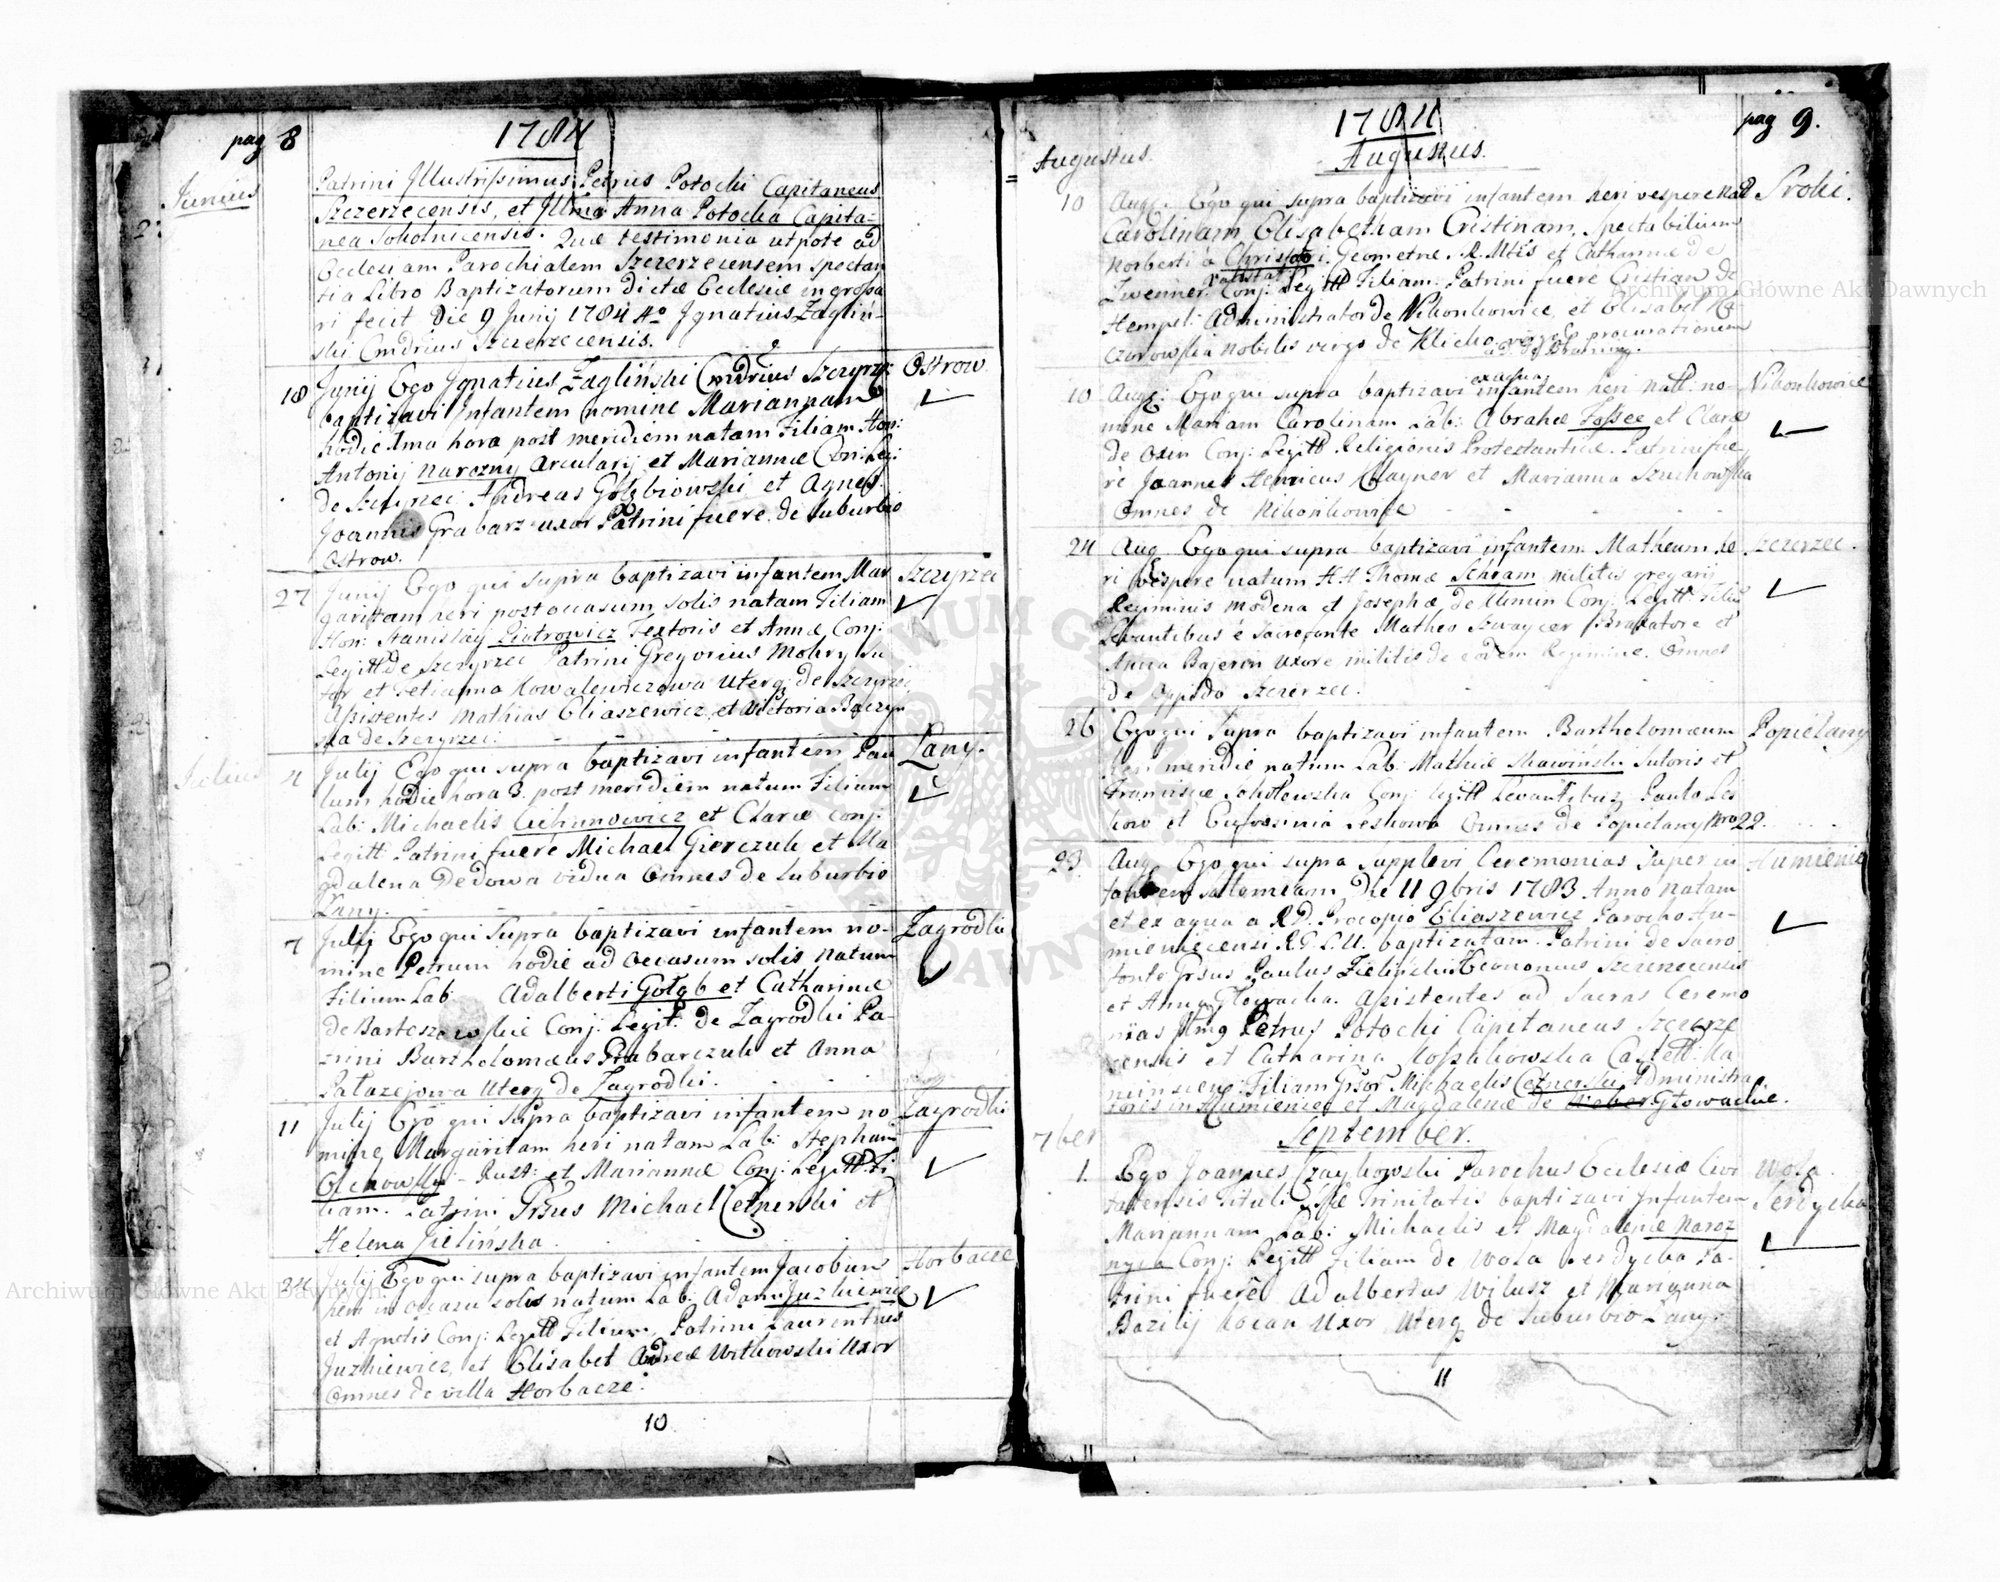 pag 8
1784
Junius
Patrini Illustrissimus Petrus Potocki Capitaneus
Szczerzecensis, et Illma Anna Potocka Capita-
nea Sokolnicensis. Quæ testimonia utpote ad
Ecclesiam Parochialem Szczerzecensem spectan
tia Libro Baptizatorum dictæ Ecclesiæ ingrossa
ri fecit Die 9 Junij 1784 Ao Ignatius Zagliń-
ski Cmdrius Szczerzecensis.
18 Junij Ego Ignatius Zagliński Cmdrius Szczyrz: Ostrow
baptizavi Infantem nomine Mariannam
hodie 1ma hora post meridiem natam Filiam Hon:
Antonij Narozny Arcularij et Mariannæ Conj: Leg:
de Szczyrzec. Andreas Gołębiowski et Agnes
Joannis Grabarz uxor Patrini fuere de Suburbio
Ostrow.
27 Junij Ego qui supra baptizavi infantem Mar Szczyrzec
garittam heri post occasum solis natam Filiam
Hon: Stanislaij Piotrowicz Textoris et Annæ Conj:
Legitt de Szczyrzec Patrini Gregorius Mokry Su
tor et Tetianna Kowalewiczowa Uterq: de Szczyrzec,
Assistentes Mathias Eliaszewicz et Victoria
ska de Szczyrzec.
Julius
4 Julij Ego qui supra baptizavi infantem Pau Łany.
lum hodie hora 3. post meridiem natum Filium
Lab: Michaelis Cichunowicz et Claræ Conj:
Legitt: Patrini fuere Michael Gierczuk et Ma
gdalena Dedowa vidua Omnes de Suburbio
Łany.
7 Julij Ego qui Supra baptizavi infantem no- Zagrodki
mine Petrum hodie ad occasum solis natum
Filium Lab: Adalberti Gołąb et Catharinæ
de Conj: Legit: de Zagrodki Pa-
trini Bartholomæus Grabarczuk et Anna
Pałazejowa Uterq de Zagrodki.
11 Julij Ego qui supra baptizavi infantem no Zagrodki
mine Margaritam heri natam Lab: Stephani
Rust: et Mariannæ Conj: Legitt: Fi
liam. Patrini Grsus Michael Cetnerski et
Helena Zielińska.
24 Julij Ego qui supra baptizavi infantem Jacobum Horbacze
heri in occasu solis natum Lab: Adami Juzkiewicz
et Agnetis Conj: Legitt Filium. Patrini Laurentius
Juzkiewicz, et Elisabet Andreæ Witkowski Uxor
Omnes de villa Horbacze.
10
pag 9.
1784
Augustus.
Augustus.
10 Aug: Ego qui supra baptizavi infantem heri vespere nat Sroki.
Carolinam Elisabetham Cristinam, Spectabilium
Norberti à Geometræ R. Mtis et Catharinæ de
Zwenner Conj: Legitt Filiam. Patrini fuere Cristian de
Hempel Administrator de Nikonkowice, et Elisabet
czurowska nobilis virgo de procurationem
10 Aug: Ego qui supra baptizavi ex aqua infantem heri natt: no- Nikonkowice
mine Mariam Carolinam Lab: Abrahæ et Claræ
de Conj: Legitt. Religionis Protestanticæ. Patrini fue
re Joannes Henricus et Marianna
Omnes de Nikonkowice
24 Aug Ego qui supra baptizavi infantem Matheum he Szczerzec.
ri vespere natum HH Thomæ Schram militis gregarij
Regiminis Modena et Josephæ de Conj: Legitt: Filiu
Levantibus è Sacro fonte Matheo Szwaycer et
Anna Uxore militis de eodem Regimine. Omnes
de Oppido Szczerzec.
26 Ego qui Supra baptizavi infantem Bartholomæum Popielany
heri meridie natum Lab: Mathiæ Sutoris et
Franciscæ Sokołowska Conj: Legitt Levantibus Paulo Les
kow et Eufrosinia Leskowa Omnes de Popielany Nro 22.
23. Aug Ego qui supra supplevi Ceremonias Super in Humieniec
fantem Salomeam, Die 11 9bris 1783 Anno natam
et ex aqua a RD. Procopio Eliaszewicz Parocho Hu-
miencensi R.G.L.U. baptizatam. Patrini de Sacro
fonte Grsus Paulus Zieliński Economus Szczerzecensis
et Anna Głowacka. Assistentes ad Sacras Ceremo
nias Illmg Petrus Potocki Capitaneus Szczerze
censis et Catharina Kossakowska Castell: Ka
minscens: Filiam Grsor Michaelis Cetnerski Administra
toris in Humieniec et Magdalenæ de Głowackie.
7ber
September.
1. Ego Joannes Czaykowski Parochus Ecclesiæ Civi Wola
tatensis tituli SSæ Trinitatis baptizavi Infantem Serdycka
Mariannam Lab: Michaelis et Magdalenæ Naroz
nych Conj: Legitt Filiam de Wola Serdycka Pa-
trini fuere Adalbertus Wilusz et Marianna
Bazilij Uxor, Uterq de Suburbio Łany.
11
Archiwum Główne Akt Dawnych
Archiwum Główne Akt Dawnych